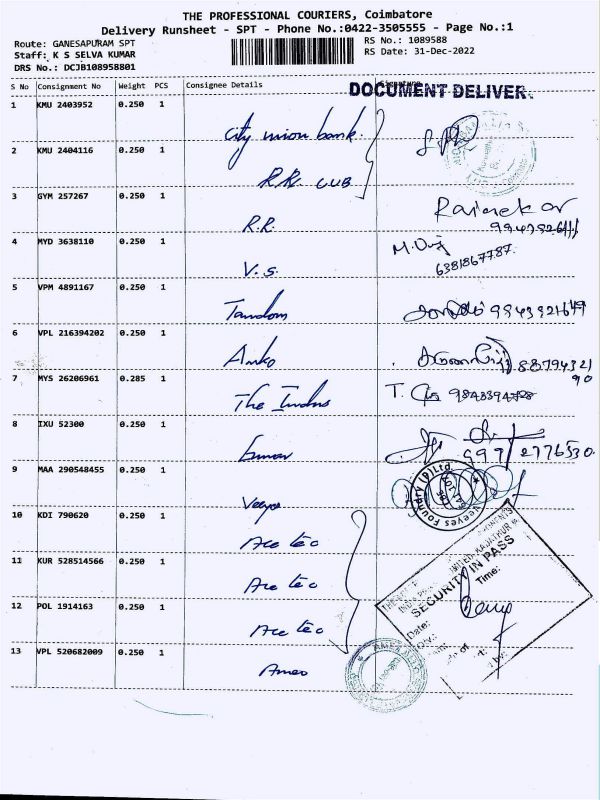 THE PROFESSIONAL COURIERS, Coimbatore
Delivery Runsheet - SPT - Phone No.:0422-3505555 - Page No.:1
Route: GANESAPURAM SPT
RS No.: 1089588
Staff: K S SELVA KUMAR
RS Date: 31-Dec-2022
DRS No.: DCJB108958801
S No Consignment No Weight PCS Consignee Details Signature
DOCUMENT DELIVER.
1 KMU 2403952 0.250 1 City union bank
2 KMU 2404116 0.250 1 R.R. CUB
3 GYM 257267 0.250 1 R.R.
4 MYD 3638110 0.250 1 V.S. 6381867787
5 VPM 4891167 0.250 1 Tandom 9943921649
6 VPL 216394202 0.250 1 Anko 8879432190
7 MYS 26206961 0.285 1 The Indus T. 9843394728
8 IXU 52300 0.250 1
9 MAA 290548455 0.250 1
Neeyes Foundry (P) Ltd.
10 KDI 790620 0.250 1 Ace tec
11 KUR 528514566 0.250 1 Ace tec
12 POL 1914163 0.250 1 Ace tec
SECURITY IN PASS
Time:
Date:
13 VPL 520682009 0.250 1